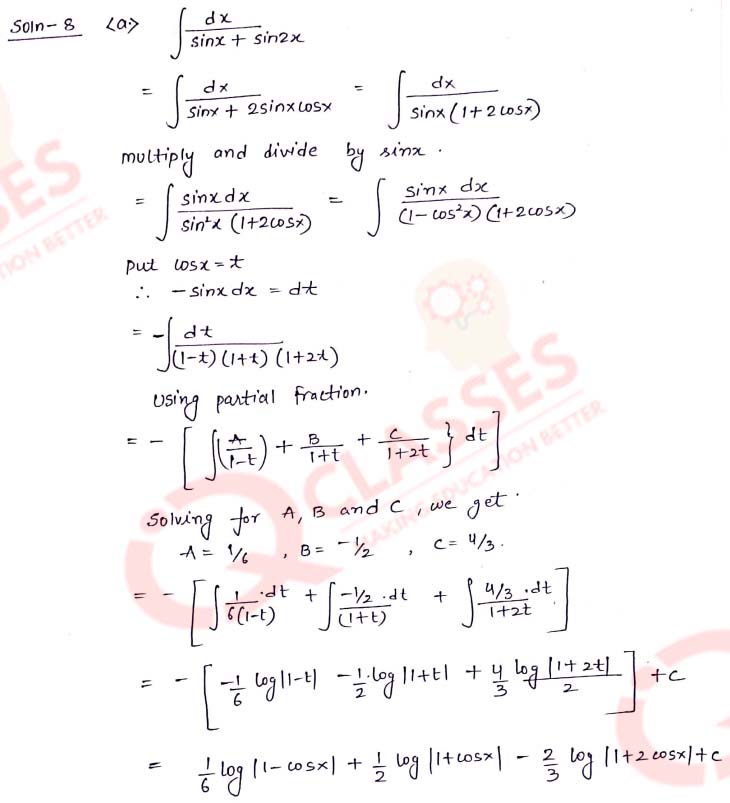 Soln-8 <a:> ∫ dx / (sinx + sin2x)
= ∫ dx / (sinx + 2sinxcosx) = ∫ dx / (sinx(1+2cosx))
multiply and divide by sinx.
= ∫ sinx dx / (sin²x (1+2cosx)) = ∫ sinx dx / ((1-cos²x)(1+2cosx))
put cosx = t
∴ -sinx dx = dt
= -∫ dt / ((1-t)(1+t)(1+2t))
Using partial fraction.
= - [ ∫ (A/(1-t)) + B/(1+t) + C/(1+2t) } dt ]
Solving for A, B and C, we get.
A = 1/6 , B = -1/2 , C = 4/3.
= - [ ∫ 1/(6(1-t)) ·dt + ∫ -1/2 ·dt/(1+t) + ∫ 4/3 ·dt/(1+2t) ]
= - [ -1/6 log|1-t| - 1/2·log|1+t| + 4/3 log|1+2t|/2 ] + c
= 1/6 log|1-cosx| + 1/2 log|1+cosx| - 2/3 log|1+2cosx| + c
CLASSES
MAKING EDUCATION BETTER
SSES
ATION BETTER